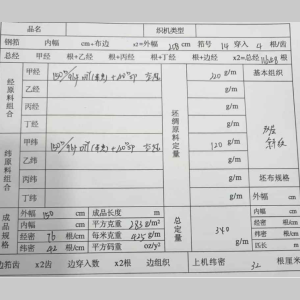 品名 织机类型
钢筘 内幅 cm+布边 x2=外幅 208 cm 筘号 14 穿入 4 根/齿
总经 甲经 根+乙经 根+丙经 根+丁经 根+边经 x2=总经 根
经原料组合 甲经 150D/ + 40D 坯绸原料定量 220 g/m 基本组织
乙经 g/m
丙经 g/m
丁经 g/m
纬原料组合 甲纬 150D/ + 40D 120 g/m
乙纬 g/m
丙纬 g/m 坯布规格
丁纬 g/m 外幅 cm
成品规格 外幅 150 cm 成品长度 m 总定量 340 g/m 内幅 cm
内幅 cm 平方克重 283 g/m² 经密 根/cm
经密 76 根/cm 每米克重 425 g/m 纬密 根/cm
纬密 42 根/cm 平方码重 oz/y² 匹长 m
边筘齿 x2齿 边穿入数 x2根 边组织 上机纬密 32 根厘米